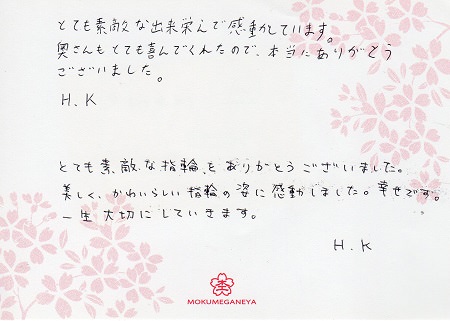 とても素敵な出来栄えで感動しています。
奥さんもとても喜んでくれたので、本当にありがとう
ございました。
H.K
とても素敵な指輪をありがとうございました。
美しく、かわいらしい指輪の姿に感動しました。幸せです。
一生大切にしていきます。
H.K
MOKUMEGANEYA